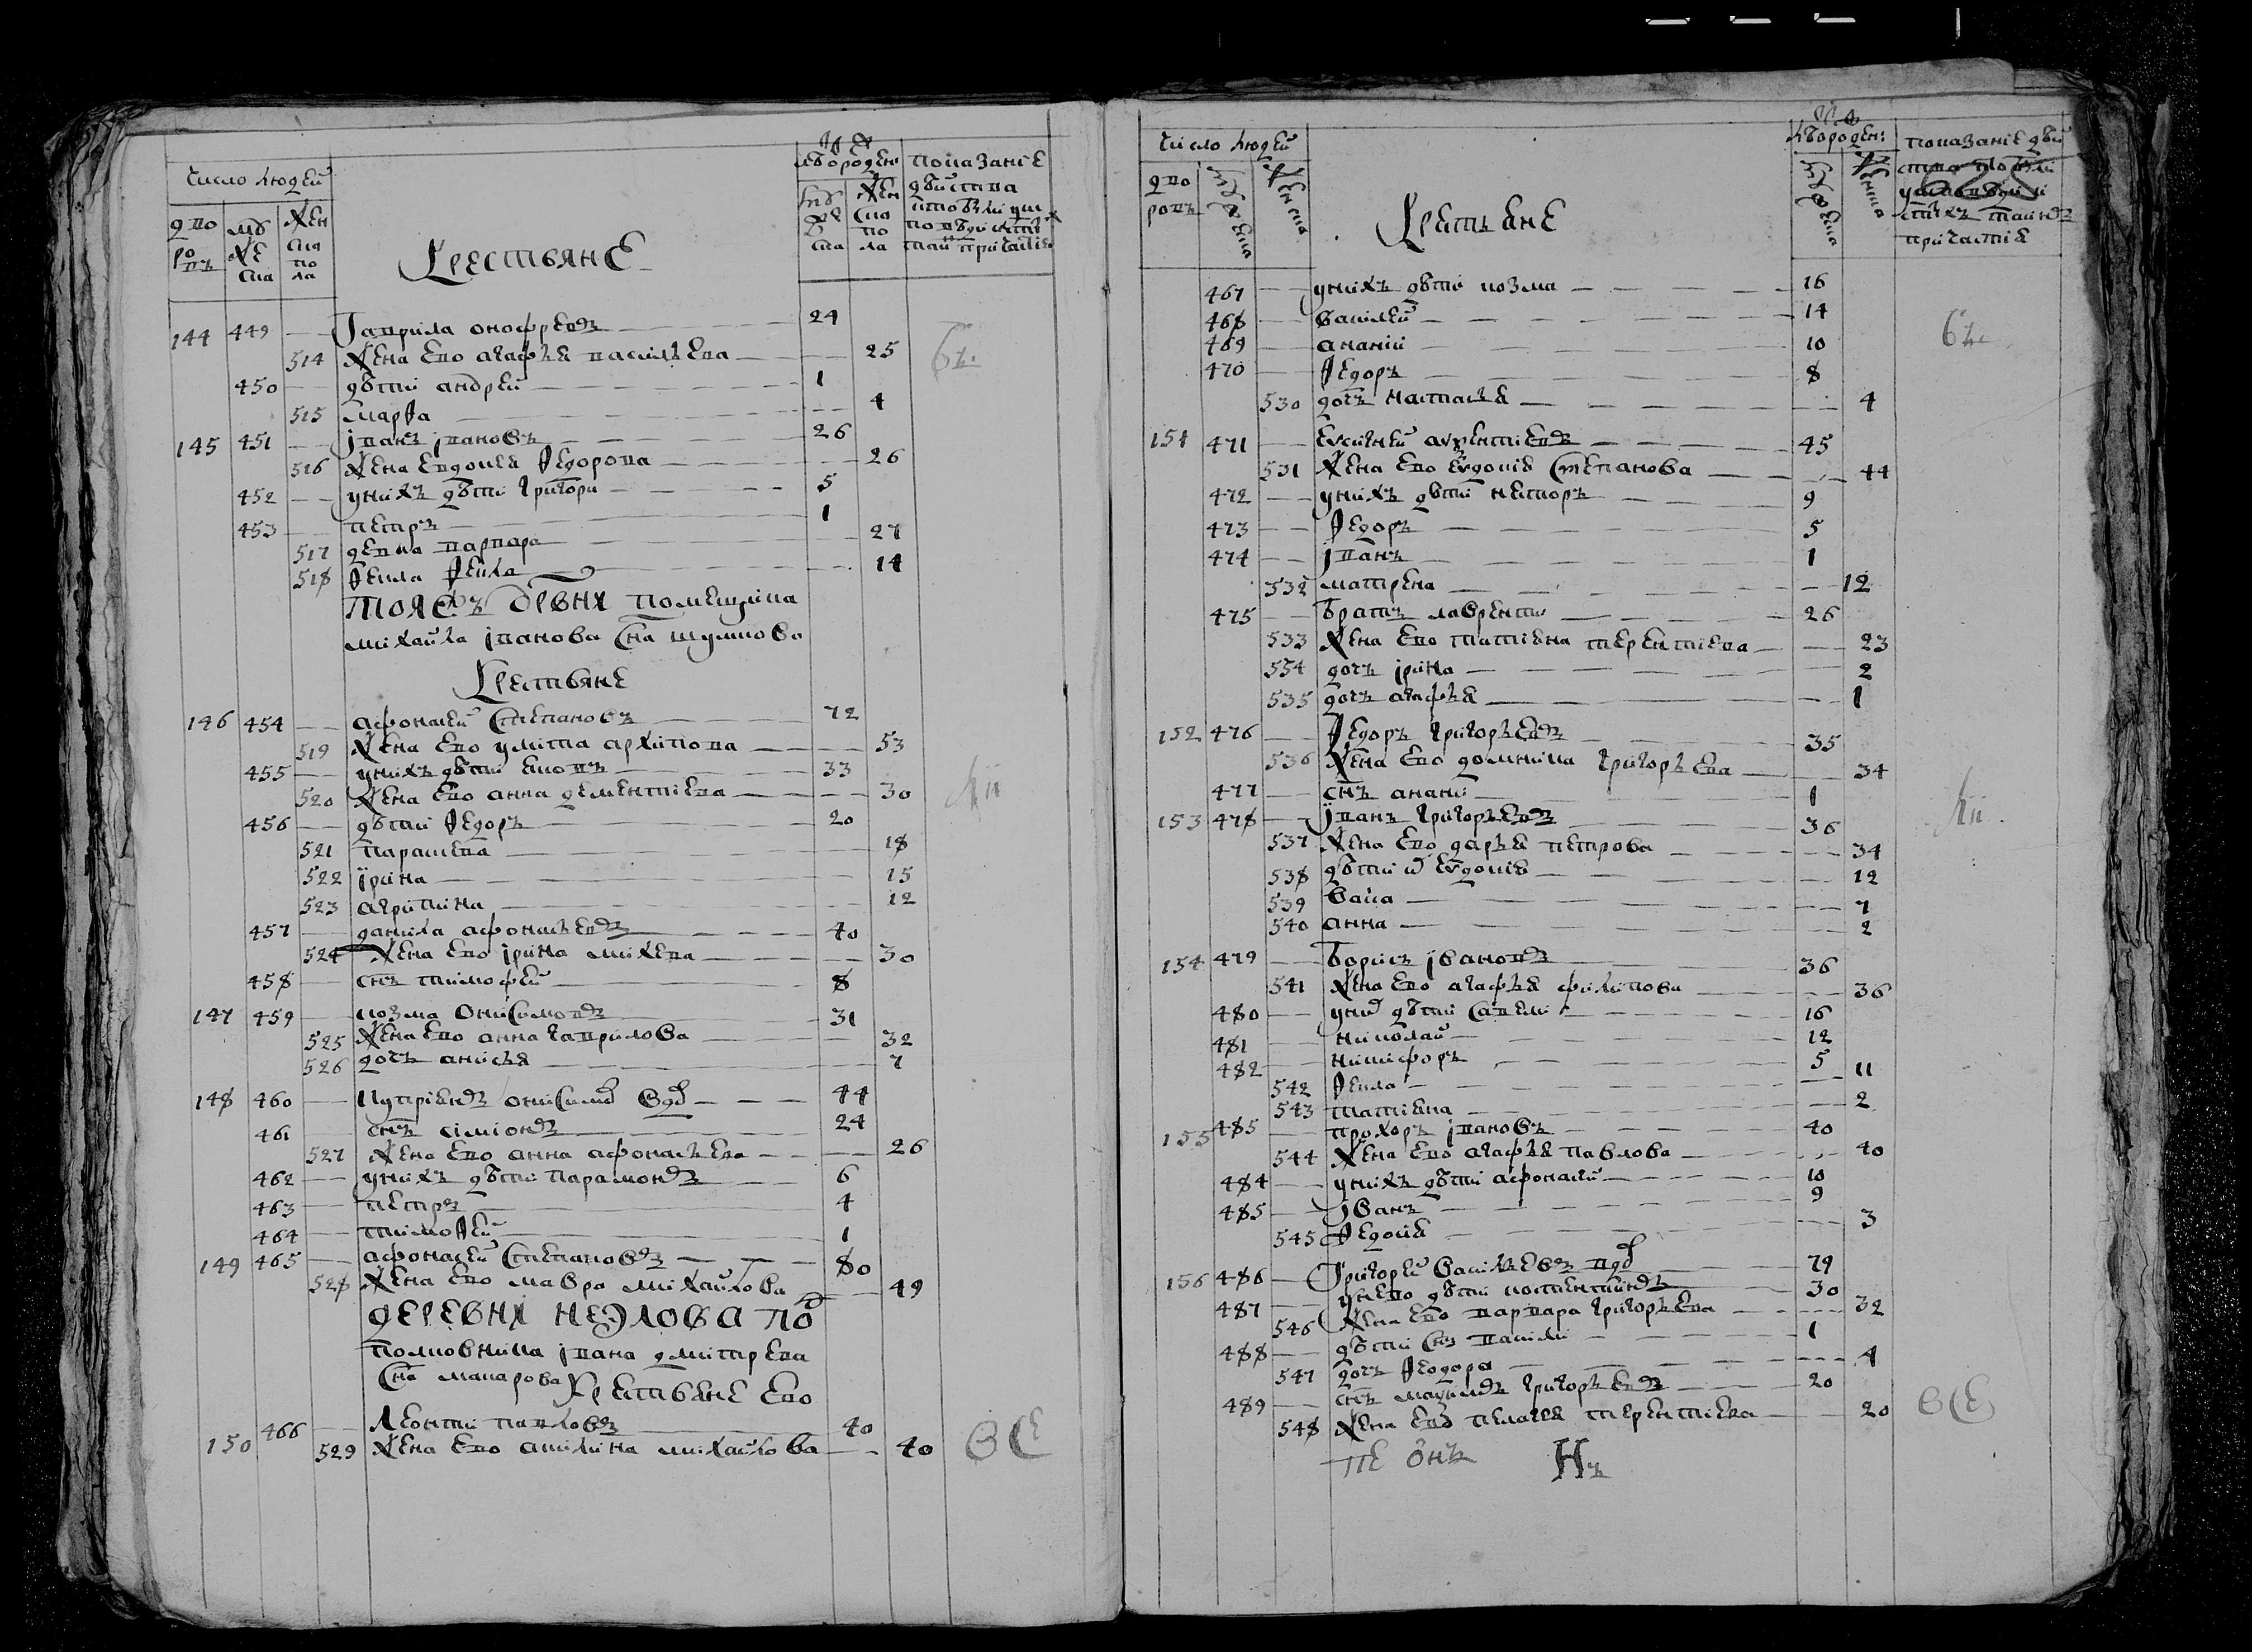 Число людей
дво ровъ
мужеска
женска пола
Крестьяне
мужеска
женска пола
показание
144 449 Гаврила онофреевъ 24
514 жена ево агафья васильева 25
450 дѣти андрей 1
515 марѳа 4
145 451 іванъ івановъ 26
516 жена евдокея ѳедорова 26
452 у нихъ дѣти григори 5
453 петръ 1
517 девка варвара 27
518 ѳекла 14
тояжъ дрвни помещика
михаила іванова сна шумкова
Крестьяне
146 454 афонасей степановъ 72
519 жена ево улита архипова 53
455 у нихъ дѣти 33
520 жена ево анна дементиева 30
456 дѣти ѳедоръ 20
521 парасцева 18
522 ірина 15
523 агрипина 12
457 данила афонасьевъ 40
524 жена ево ірина михева 30
458 снъ тимофей 8
147 459 козма онисимовъ 31
525 жена ево анна гаврилова 32
526 дочь анисья 7
148 460 куприянъ онисимо вдо 44
461 снъ симионъ 24
527 жена ево анна афонасьева 26
462 у нихъ дѣти парамонъ 6
463 петръ 4
464 тимоѳей 1
149 465 афонасей степановъ 80
528 жена ево мавра михаилова 49
деревни неэлова по
полковника івана дмитрева
сна макарова крестьяне ево
150 466 Леонтий павловъ 40
529 жена ево акилина михаилова 40
Число людей
дво ровъ
мужеска
женска
Крестьяне
467 у нихъ дѣти козма 16
468 василей 14
469 ананий 10
470 ѳедоръ 8
530 дочь настасья 4
151 471 евсигней 45
531 жена ево евдокия степанова 44
472 у нихъ дѣти несторъ 9
473 ѳедоръ 5
474 іванъ 1
532 матрена 12
475 братъ лаврентий 26
533 жена ево татияна терентиева 23
534 дочь ірина 2
535 дочь агафья 1
152 476 ѳедоръ григорьевъ 35
536 жена ево домника григорьева 34
477 снъ ананий 1
153 478 іванъ григорьевъ 36
537 жена ево дарья петрова 34
538 дѣти евдокия 12
539 васа 7
540 анна 2
154 479 борисъ івановъ 36
541 жена ево агафья филипова 36
480 у ни дѣти савели 16
481 николай 12
482 никифоръ 5
542 ѳекла 11
543 татияна 2
155 483 прохоръ івановъ 40
544 жена ево агафья павлова 40
484 у нихъ дѣти афонасей 10
485 іванъ 9
545 ѳедосия 3
156 486 григорей васильевъ вдо 79
487 у нево дѣти костентинъ 30
546 жена ево варвара григорьева 32
488 дѣти снъ василй 1
547 дочь ѳеодора 4
489 снъ максимъ григорьевъ 20
548 жена ево пелагея терентиева 20